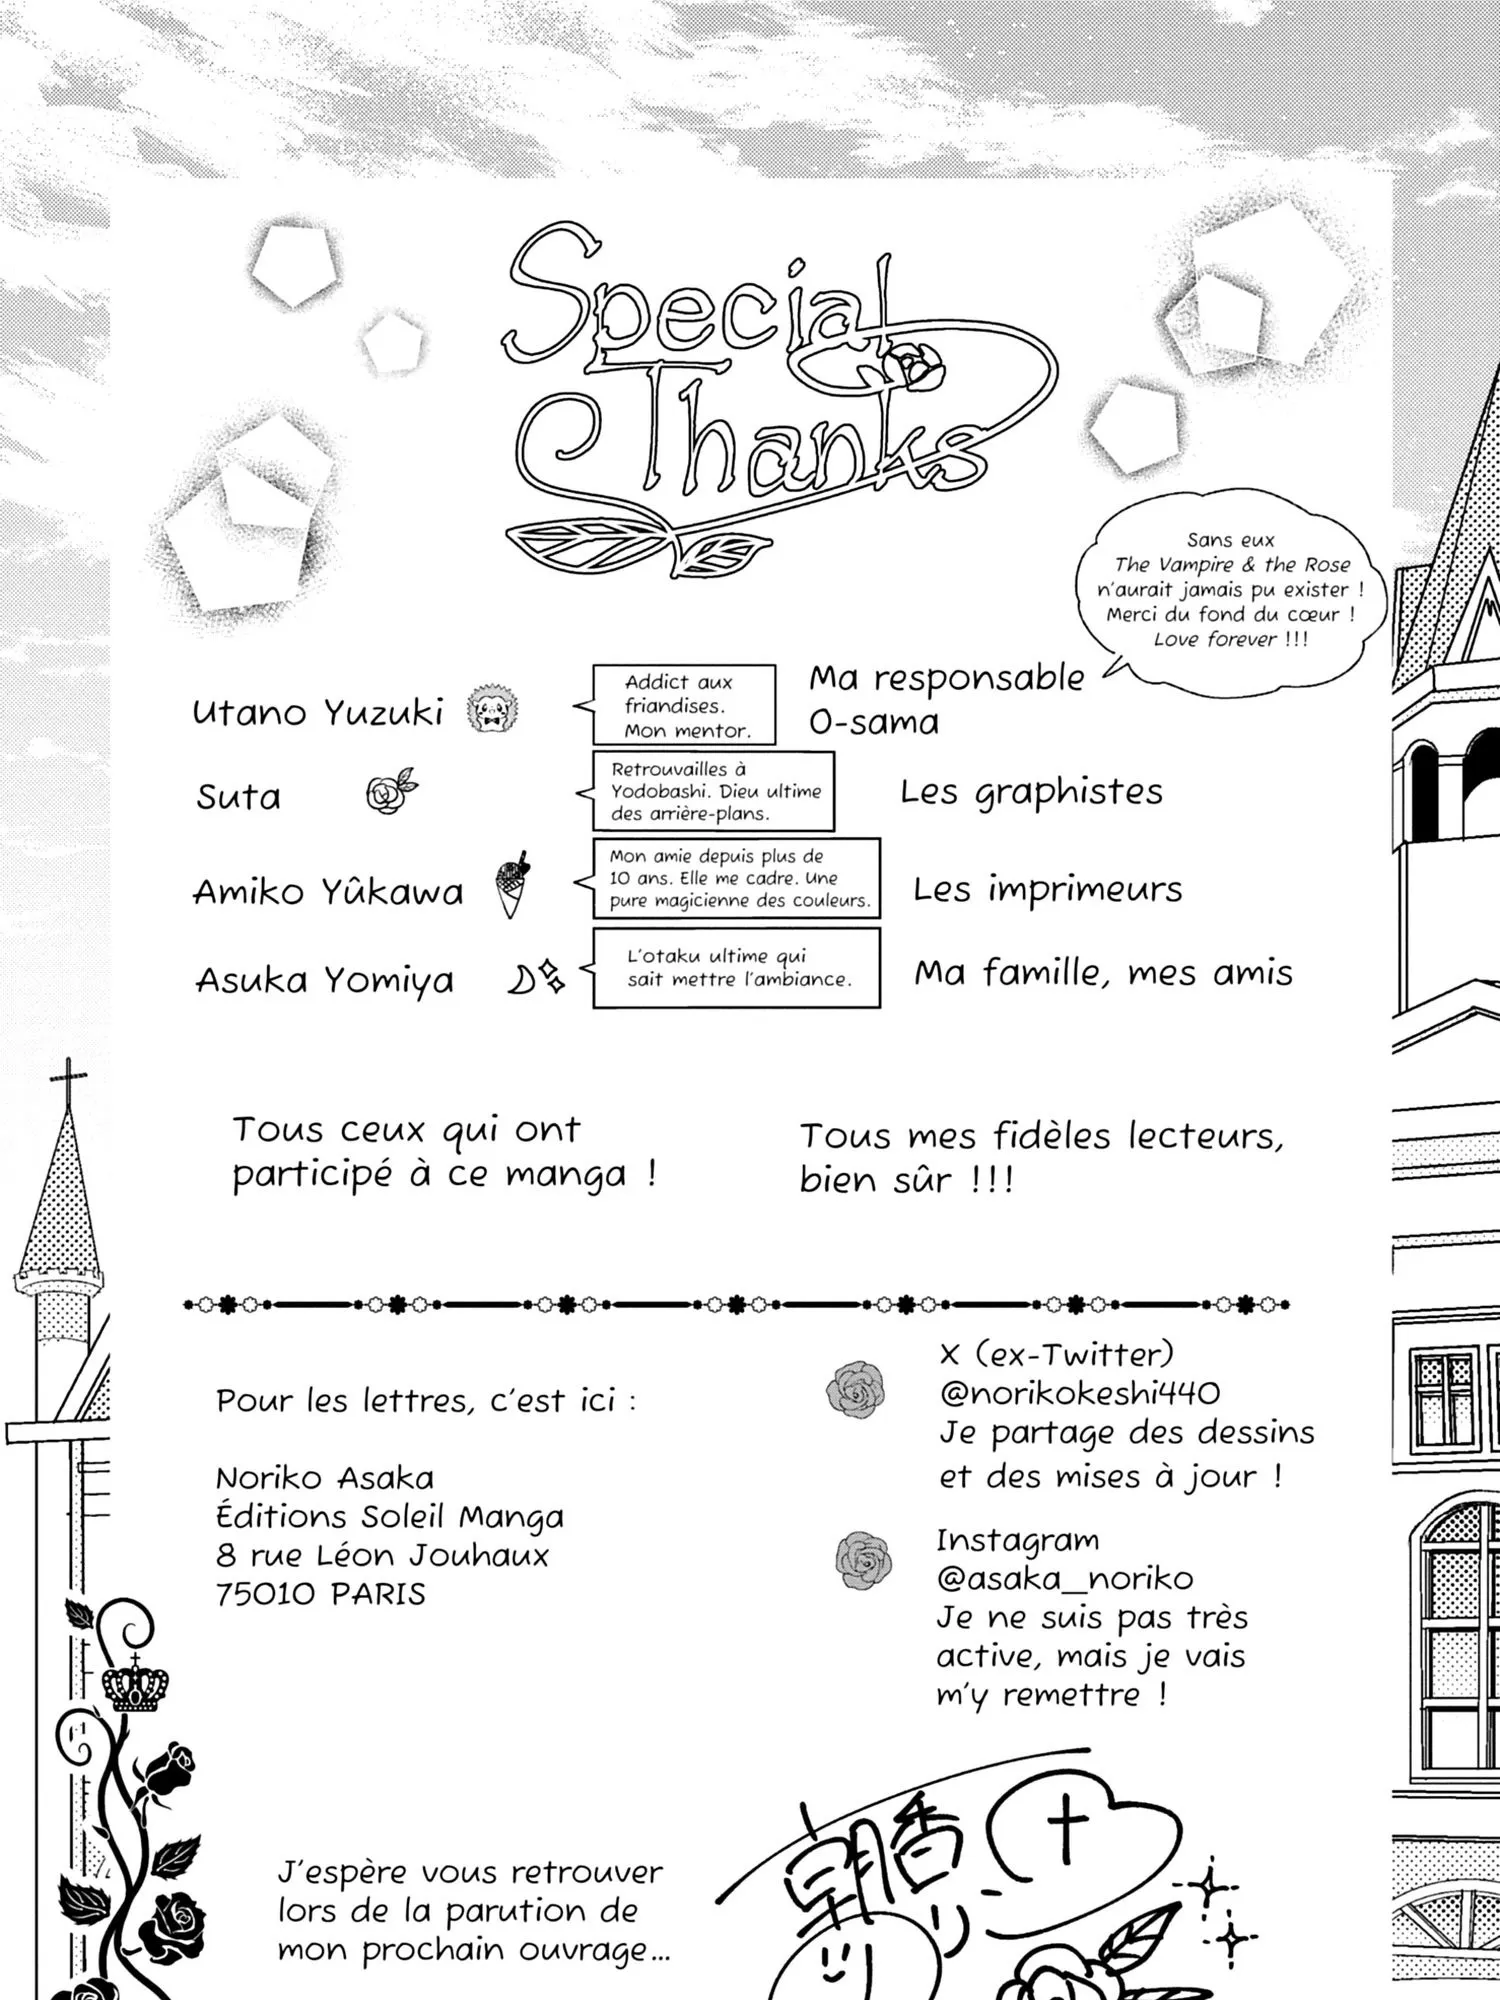 Special
Thanks
Sans eux
The Vampire & the Rose
n'aurait jamais pu exister !
Merci du fond du cœur !
Love forever !!!
Utano Yuzuki
Addict aux
friandises.
Mon mentor.
Ma responsable
O-sama
Suta
Retrouvailles à
Yodobashi. Dieu ultime
des arrière-plans.
Les graphistes
Amiko Yûkawa
Mon amie depuis plus de
10 ans. Elle me cadre. Une
pure magicienne des couleurs.
Les imprimeurs
Asuka Yomiya
L'otaku ultime qui
sait mettre l'ambiance.
Ma famille, mes amis
Tous ceux qui ont
participé à ce manga !
Tous mes fidèles lecteurs,
bien sûr !!!
Pour les lettres, c'est ici :
Noriko Asaka
Éditions Soleil Manga
8 rue Léon Jouhaux
75010 PARIS
X (ex-Twitter)
@norikokeshi440
Je partage des dessins
et des mises à jour !
Instagram
@asaka_noriko
Je ne suis pas très
active, mais je vais
m'y remettre !
J'espère vous retrouver
lors de la parution de
mon prochain ouvrage...
朝香